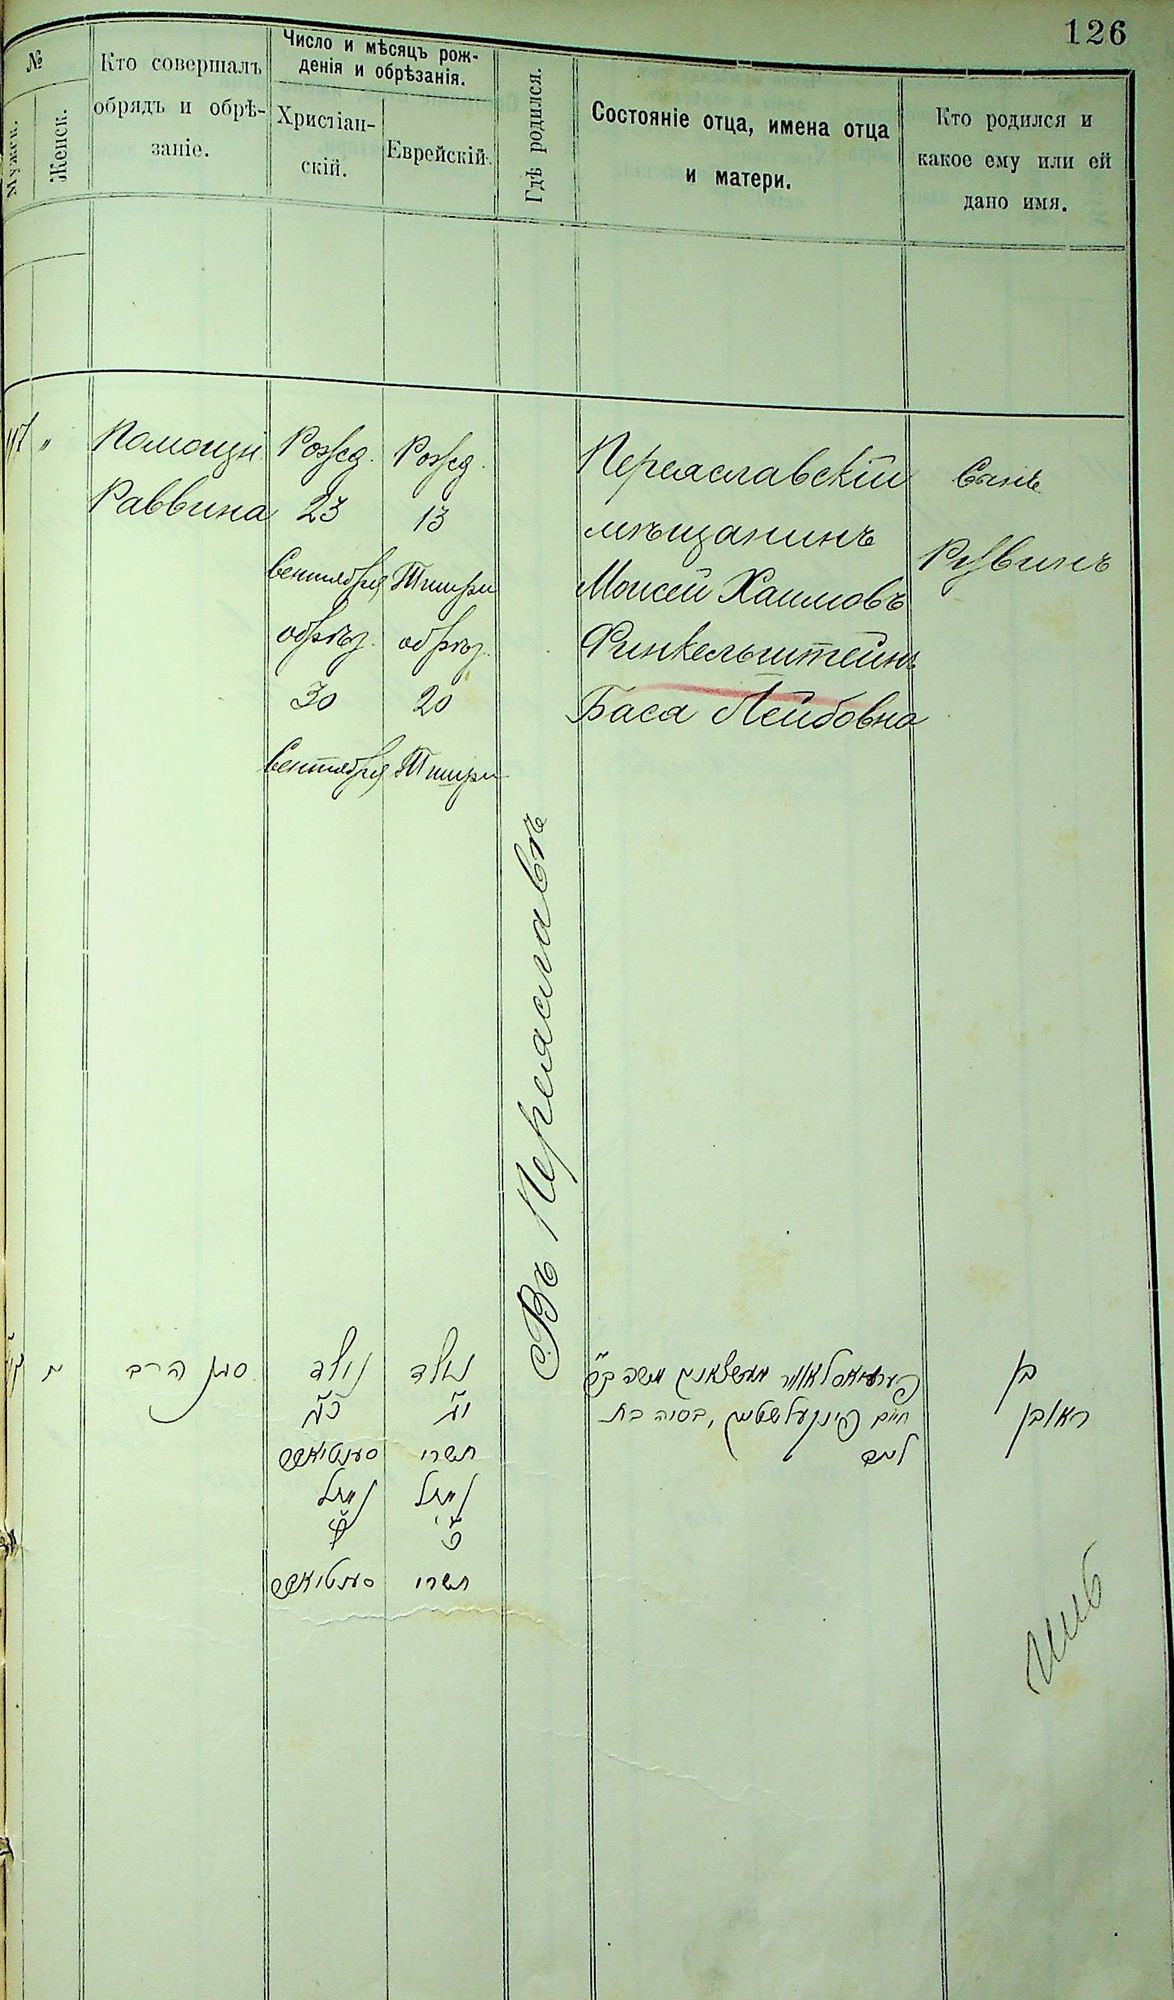 126
№
Мужск.
Женск.
Кто совершалъ
обрядъ и обрѣ-
заніе.
Число и мѣсяцъ рож-
денія и обрѣзанія.
Христіан-
скій.
Еврейскій.
Гдѣ родился.
Состояніе отца, имена отца
и матери.
Кто родился и
какое ему или ей
дано имя.
"
Помощн.
Раввина
Рожд.
23
Сентября
обрѣз.
30
Сентября
Рожд.
13
Тишри
обрѣз.
20
Тишри
Въ Переяславѣ
Переяславскій
мѣщанинъ
Моисей Хаимовъ
Финкельштейнъ
Баса Лейбовна
Сынъ
Рувинъ
סגן הרב
נולד
כ״ג
נימול
ל׳
נולד
י״ג
תשרי
נימול
כ׳
תשרי
משה
חיים פינקעלשטיין, בסיה בת
לייב
בן
ראובן